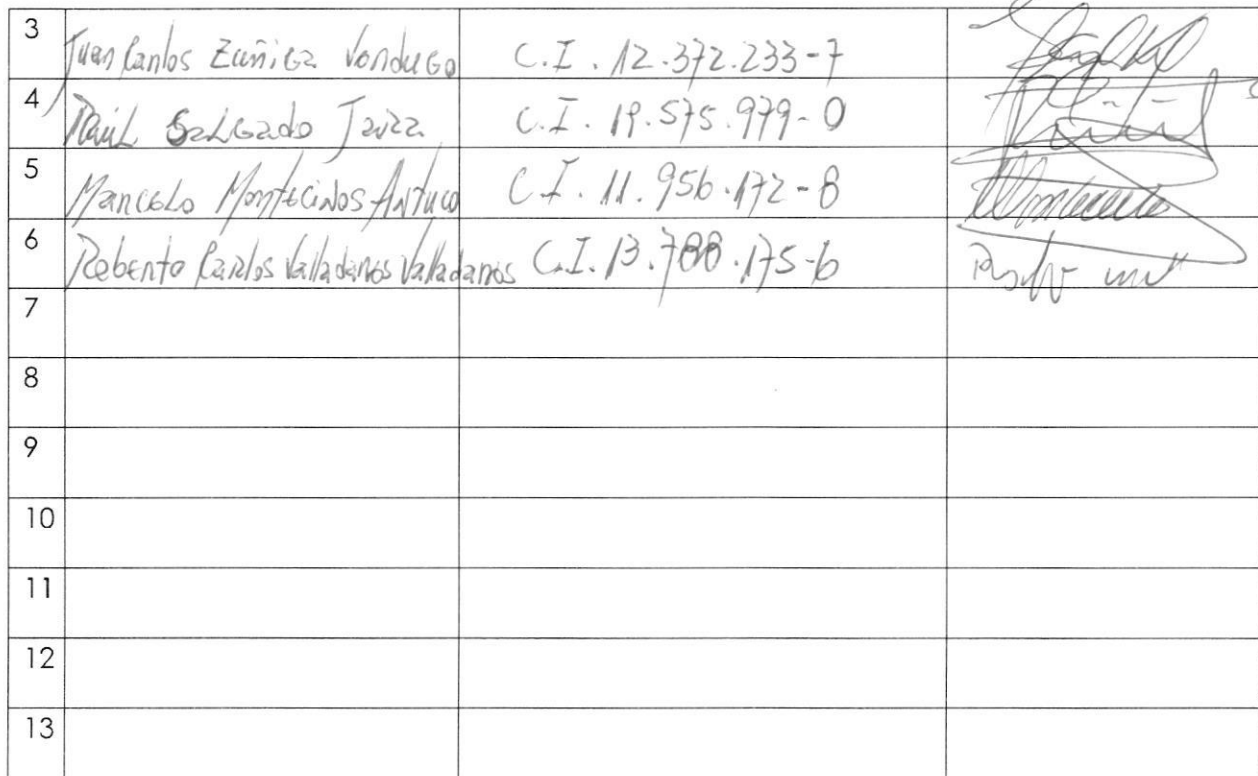 3 Juan Carlos Zúñiga Verdugo C.I. 12.372.233-7
4 Raúl Salgado Jara C.I. 19.575.979-0
5 Marcelo Montecinos Antuco C.I. 11.956.172-8
6 Roberto Carlos Valladares Valladares C.I. 13.788.175-6
7
8
9
10
11
12
13